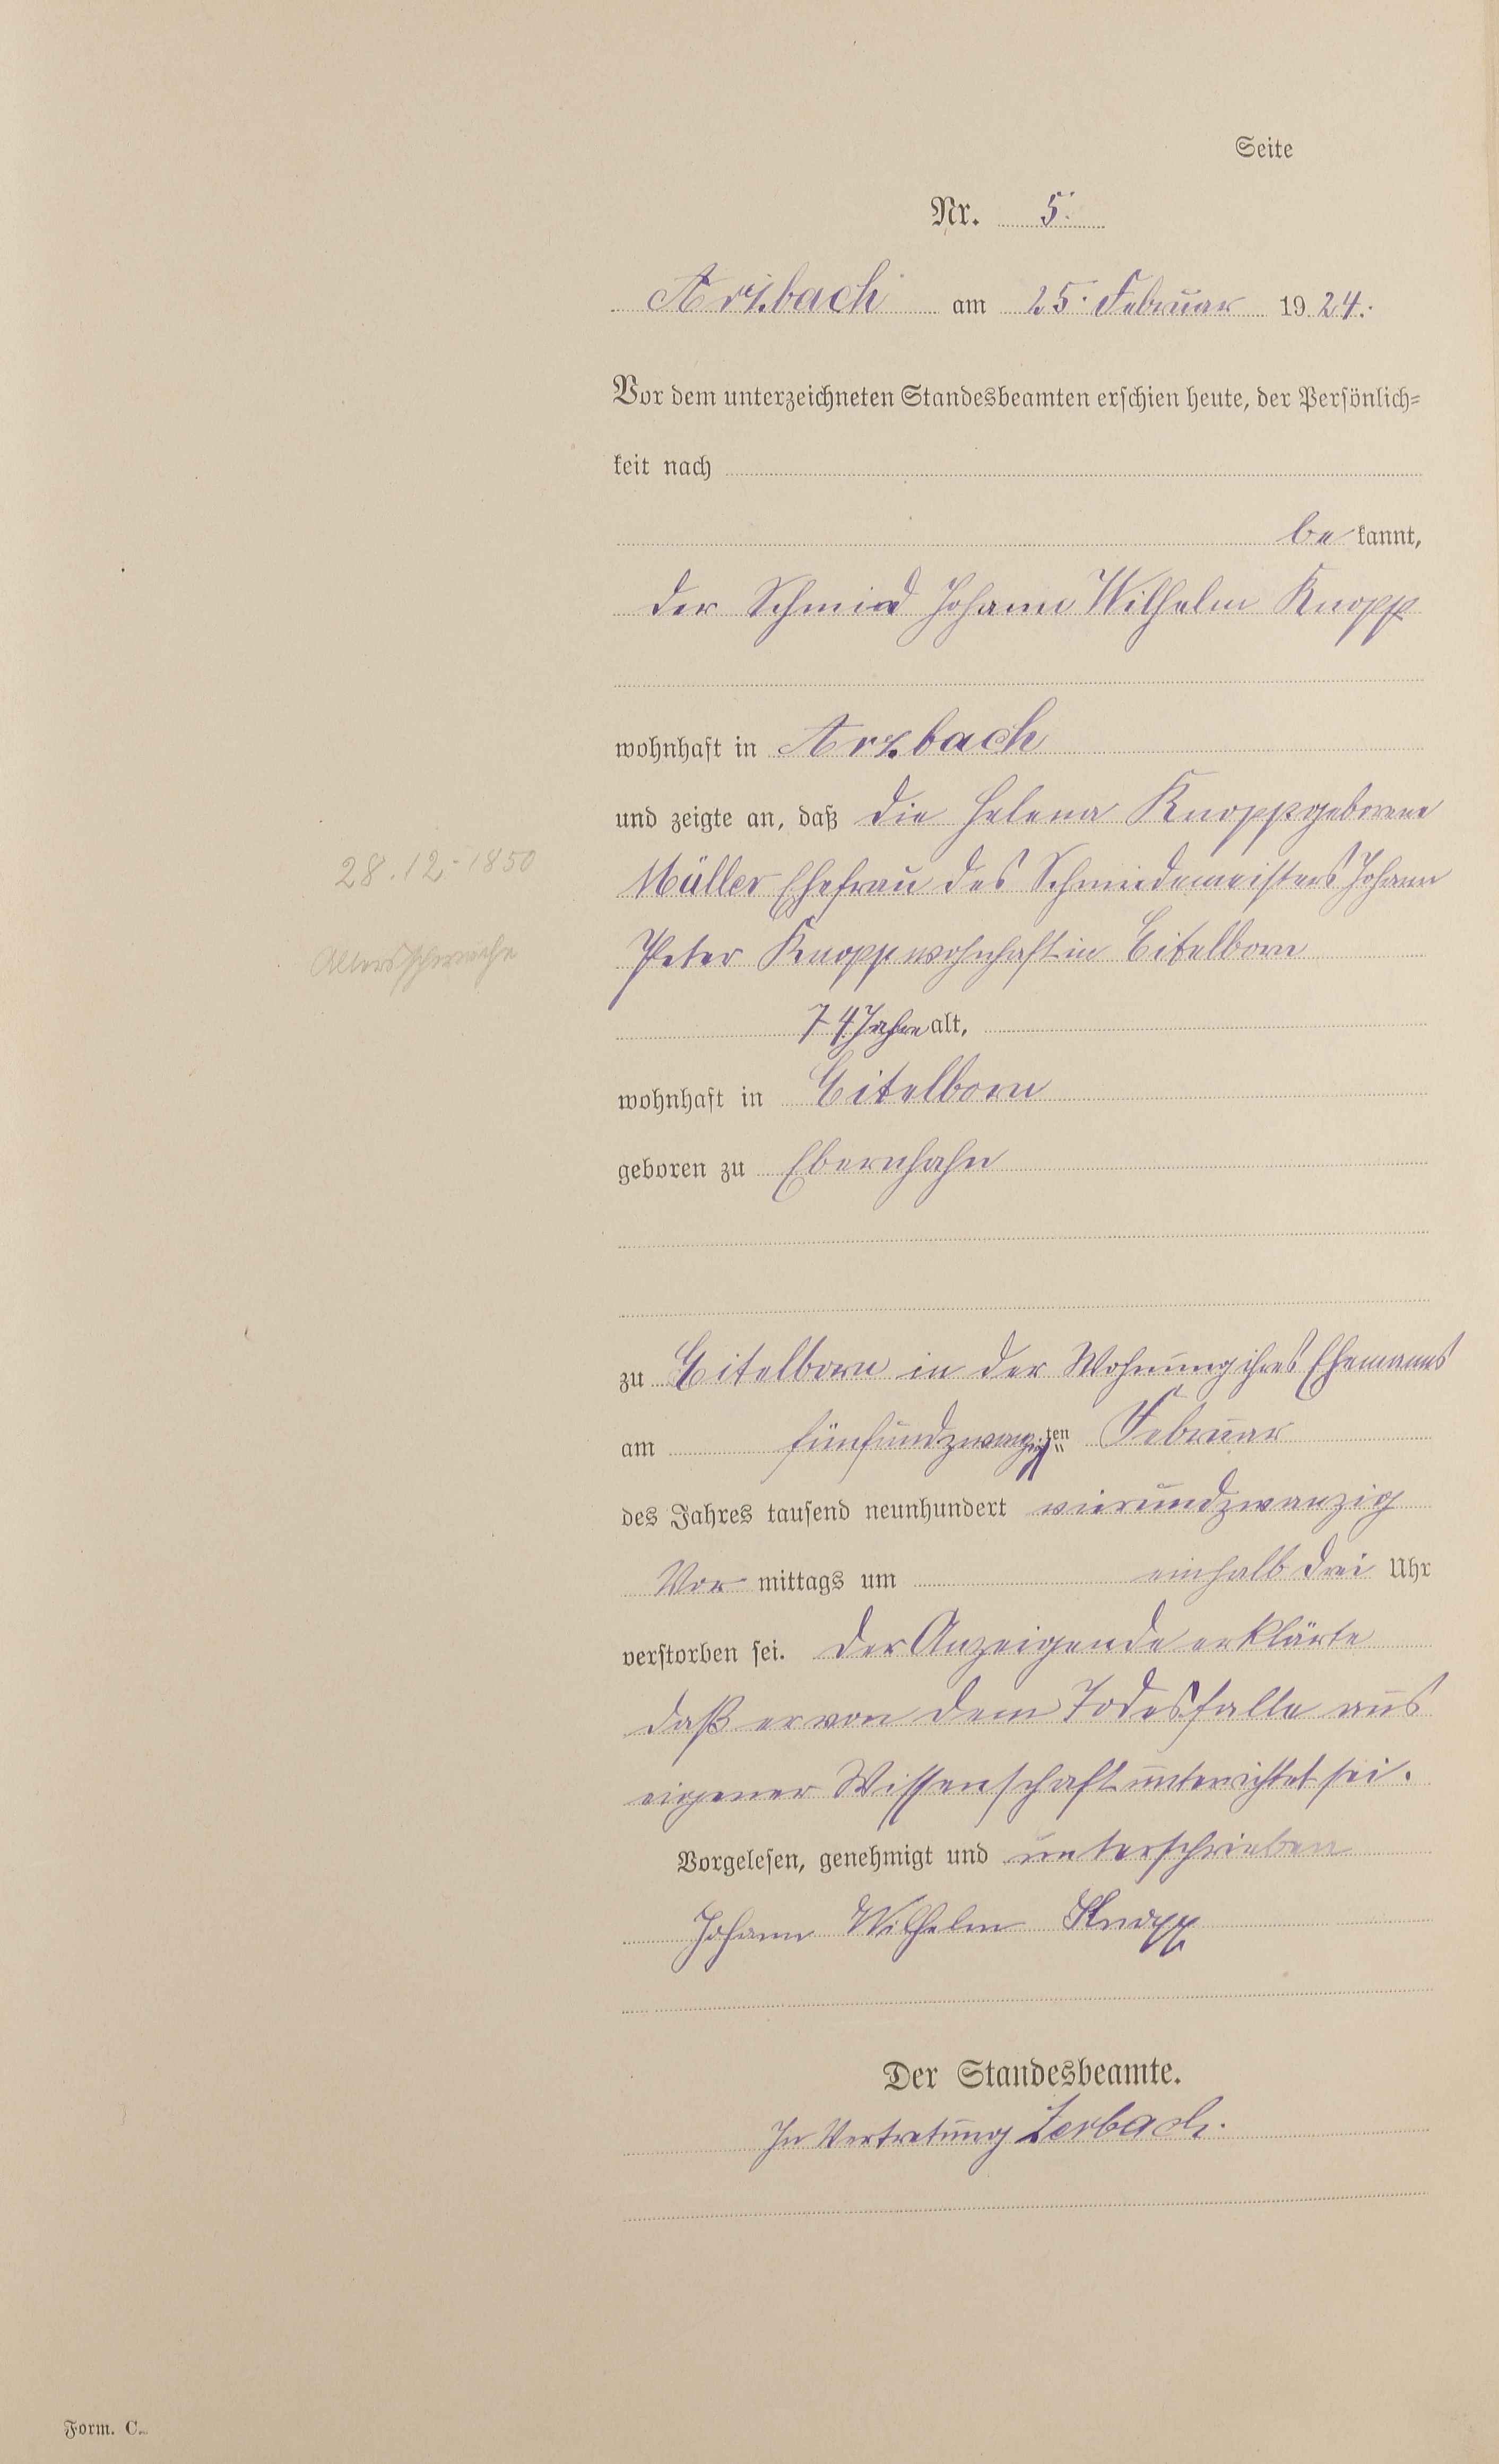 Seite
Nr. 5.
Arzbach am 25. Februar 1924.
Vor dem unterzeichneten Standesbeamten erschien heute, der Persönlich=
keit nach
be kannt,
der Schmied Johann Wilhelm Knopp
wohnhaft in Arzbach
und zeigte an, daß die Helena Knopp geborene
28.12.1850
Müller Ehefrau des Schmiedemeisters Johann
Altersschwäche
Peter Knopp wohnhaft in Eitelborn
74 Jahre alt,
wohnhaft in Eitelborn
geboren zu Ebernhahn
zu Eitelborn in der Wohnung ihres Ehemanns
am fünfundzwanzigten Februar
des Jahres tausend neunhundert vierundzwanzig
Vor mittags um einhalb drei Uhr
verstorben sei. Der Anzeigende erklärte
daß er von dem Todesfalle aus
eigener Wissenschaft unterrichtet sei.
Vorgelesen, genehmigt und unterschrieben
Johann Wilhelm Knopp
Der Standesbeamte.
In Vertretung Zerbach.
Form. C.